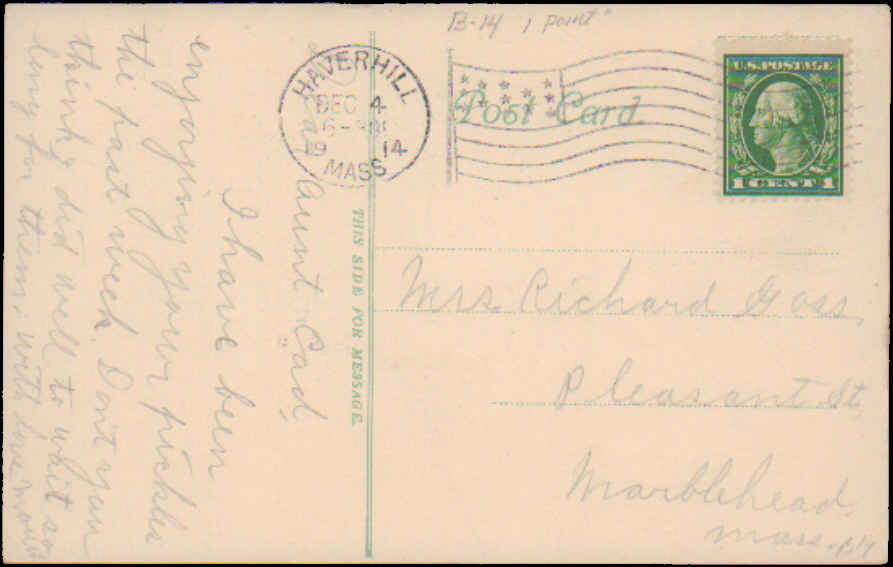 B-14 1 point"
HAVERHILL
DEC 4
19 14
MASS
Post Card.
U.S. POSTAGE
1 CENT 1
THIS SIDE FOR MESSAGE.
Aunt Cad,
I have been
enjoying your pickles
the past week. Don't you
think I did well to wait so
long for them. with love
Mrs. Richard Goss,
Pleasant St,
Marblehead,
Mass.